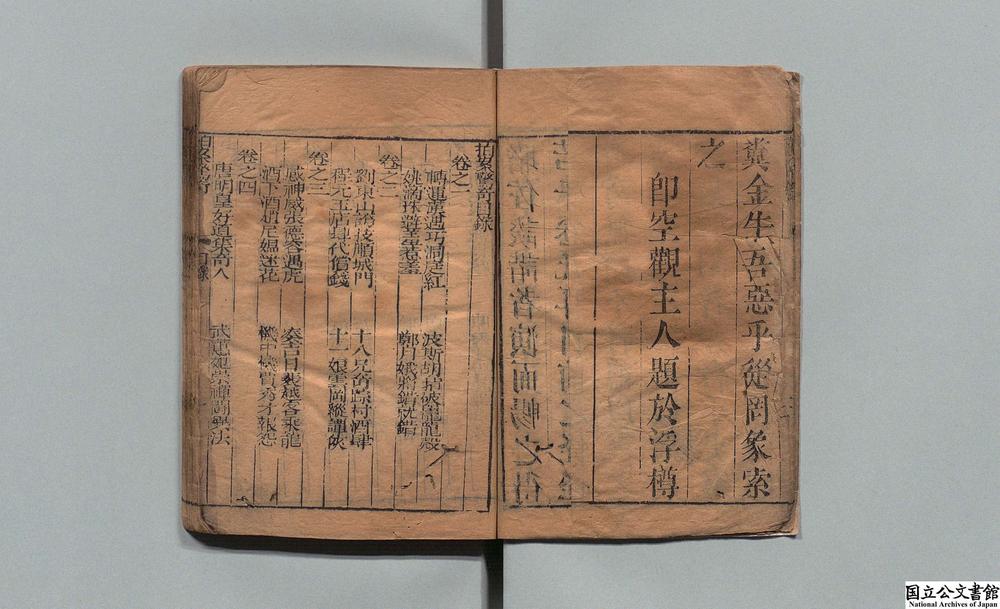 糞金牛吾惡乎從罔象索
之
即空觀主人題於浮樽
拍案驚奇目錄
卷之一
轉運漢遇巧洞庭紅 波斯胡指破鼉龍殼
姚滴珠避羞惹羞 鄭月娥將錯就錯
卷之二
劉東山誇技順城門 十八兄奇踪村酒肆
程元玉店肆代償錢 十一娘雲岡縱譚俠
卷之三
感神媒張德容遇虎 湊吉日裴越客乘龍
酒下酒趙尼媼迷花 機中機賈秀才報怨
卷之四
唐明皇好道集奇人 武惠妃崇禪鬪異法
拍案驚奇 目錄
国立公文書館
National Archives of Japan